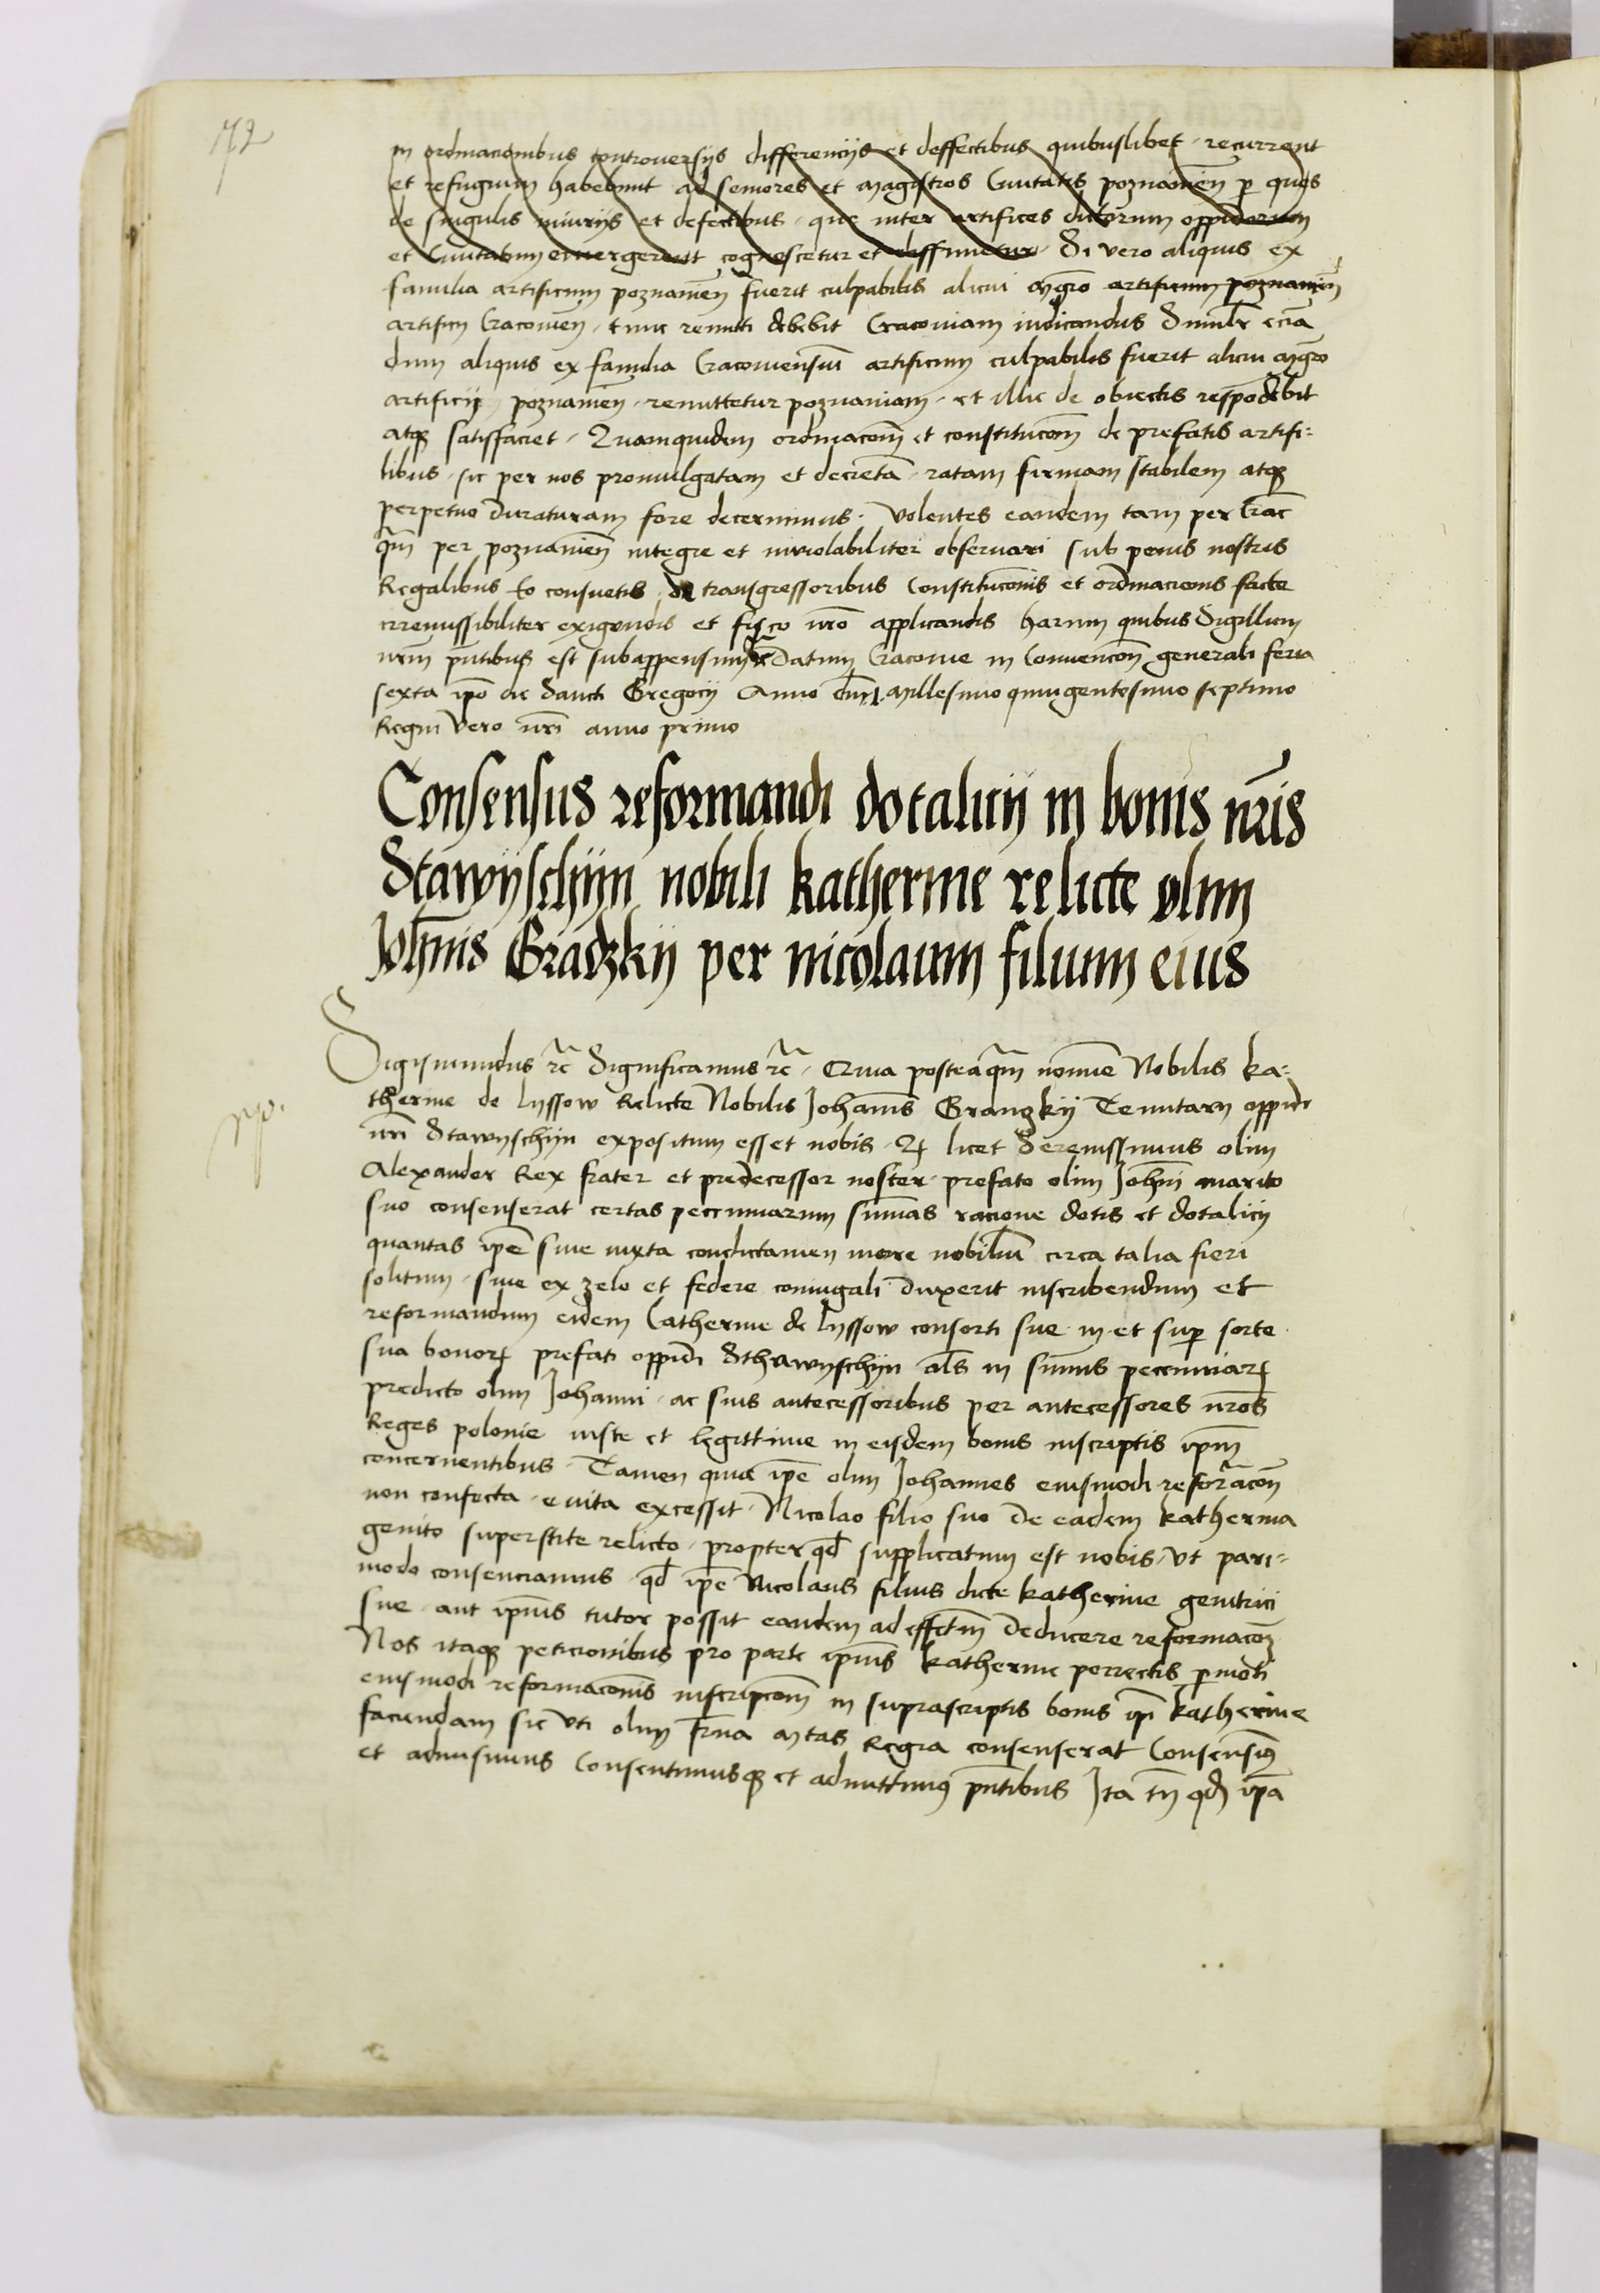 172
in ordinacionibus controversijs differencijs et deffectibus quibuslibet · recurrent
et refugium habebunt ad seniores et magistros Civitatis poznanien̄ p̄ quos
de singulis iniurijs et defectibus · que inter artifices dictorum oppidorum
et Civitatum emergerent cognoscetur et diffinietur · Si vero aliquis ex
familia artificum poznanien̄ fuerit culpabilis alicui mgr̄o artificum poznanien̄
artificij Cracovien̄ · tunc remitti debebit Cracoviam iudicandus Similr̄ eciā
dum aliquis ex familia Cracoviensiū artificum culpabilis fuerit alicui mgr̄o
artificij poznanien̄ · remittetur poznaniam · et illic de obiectis respōdebit
atqꝫ satisfaciet · Quamquidem ordinacōm̄ et constitucōm̄ de prefatis artifi=
libus · sic per nos promulgatam et decretā · ratam firmam stabilem atqꝫ
perpetuo duraturam fore decernimus · Volentes eandem tam per Crac̄
qm̄ per poznanien̄ integre et inviolabiliter observari sub penis nostris
Regalibus eo consuetis de transgressoribus Constitucōnis et ordinacionis facte
irremissibiliter exigendis et fisco nr̄o applicandis harum quibus Sigillum
nr̄m pn̄tibus est subappensum Datum Cracovie in Convencōn̄ generali feria
sexta ip̄o die Sancti Gregorij Anno dn̄i Millesimo quingentesimo septimo
Regni vero nr̄i anno primo
Consensus reformandi dotalicij in bonis nr̄is
Stawyschyn nobili katherine relicte olim
Joh̄nis Gradzkij per nicolaum filium eius
Sigismundus rc̄ Significamus rc̄ · Quia posteaqm̄ nomine Nobilis ka=
therine de lyssow Relicte Nobilis Johannis Grangkij Tenutarij oppidi
nr̄i Stawyschyn expositum esset nobis · Qꝫ licet Serenissimus olim
Alexander Rex frater et predecessor noster · prefato olim Joh̄ni marito
suo consenserat certas peccuniarum sum̄as racione dotis et dotalicij
quantas ip̄e sive iuxta condictamen more nobiliū circa talia fieri
solitum · sive ex zelo et federe coniugali duxerit inscribendum et
reformandum eidem Catherine de lyssow consorti sue · in et sup̄ sorte
sua bonorꝫ prefati oppidi Sthawyschyn al̄s in sum̄is peccuniarꝫ
predicto olim Johanni · ac suis antecessoribus per antecessores nr̄os
Reges polonie iuste et legittime in eisdem bonis inscriptis ip̄m
concernentibus · Tamen quia ip̄e olim Johannes eiusmodi reformacōn̄
non confecta · e vita excessit · Nicolao filio suo de eadem katherina
genito superstite relicto · propter qd̄ supplicatum est nobis · ut pari=
modo consenciamus · qd̄ ip̄e Nicolaus filius dicte katherine genitrici
sue · aut ip̄ius tutor possit eandem ad effctm̄ deducere reformacōꝫ
Nos itaqꝫ peticionibus pro parte ip̄ius katherine porrectis p̄moti
eiusmodi reformacōnis inscripcōm̄ in suprascriptis bonis ip̄i katherine
faciendam sic uti olim fr̄na Mtas Regia consenserat Consensim̄
et admisimus Consentimusqꝫ et admittimꝰ pn̄tibus Ita tn̄ qd̄ ip̄a